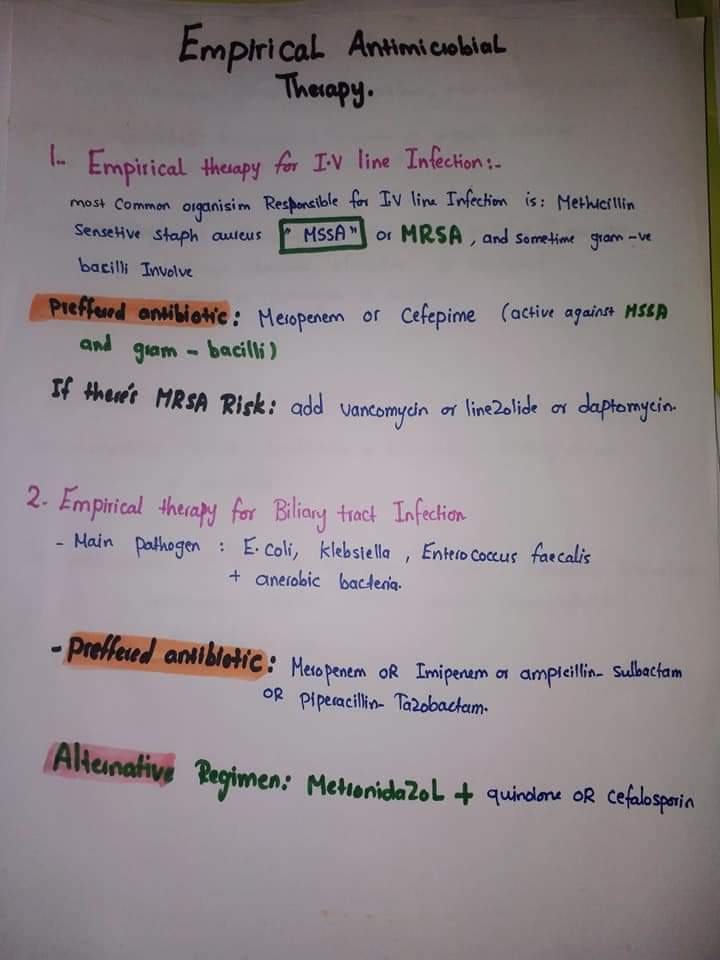 Empirical Antimicrobial
Therapy.
1.. Empirical therapy for I.V line Infection:-
most Common organisim Responsible for I.V line Infection is: Methicillin
Sensetive staph aureus "MSSA" or MRSA, and sometime gram -ve
bacilli Involve
Preffered antibiotic: Meropenem or Cefepime (active against MSSA
and gram - bacilli)
If there's MRSA Risk: add vancomycin or linezolide or daptomycin.
2. Empirical therapy for Biliary tract Infection
- Main pathogen : E. coli, Klebsiella, Enterococcus faecalis
+ anerobic bacteria.
- Preffered antibiotic: Meropenem OR Imipenem or ampicillin- Sulbactam
OR Piperacillin- Tazobactam.
Alternative Regimen: Metronidazol + quinolone OR cefalosporin